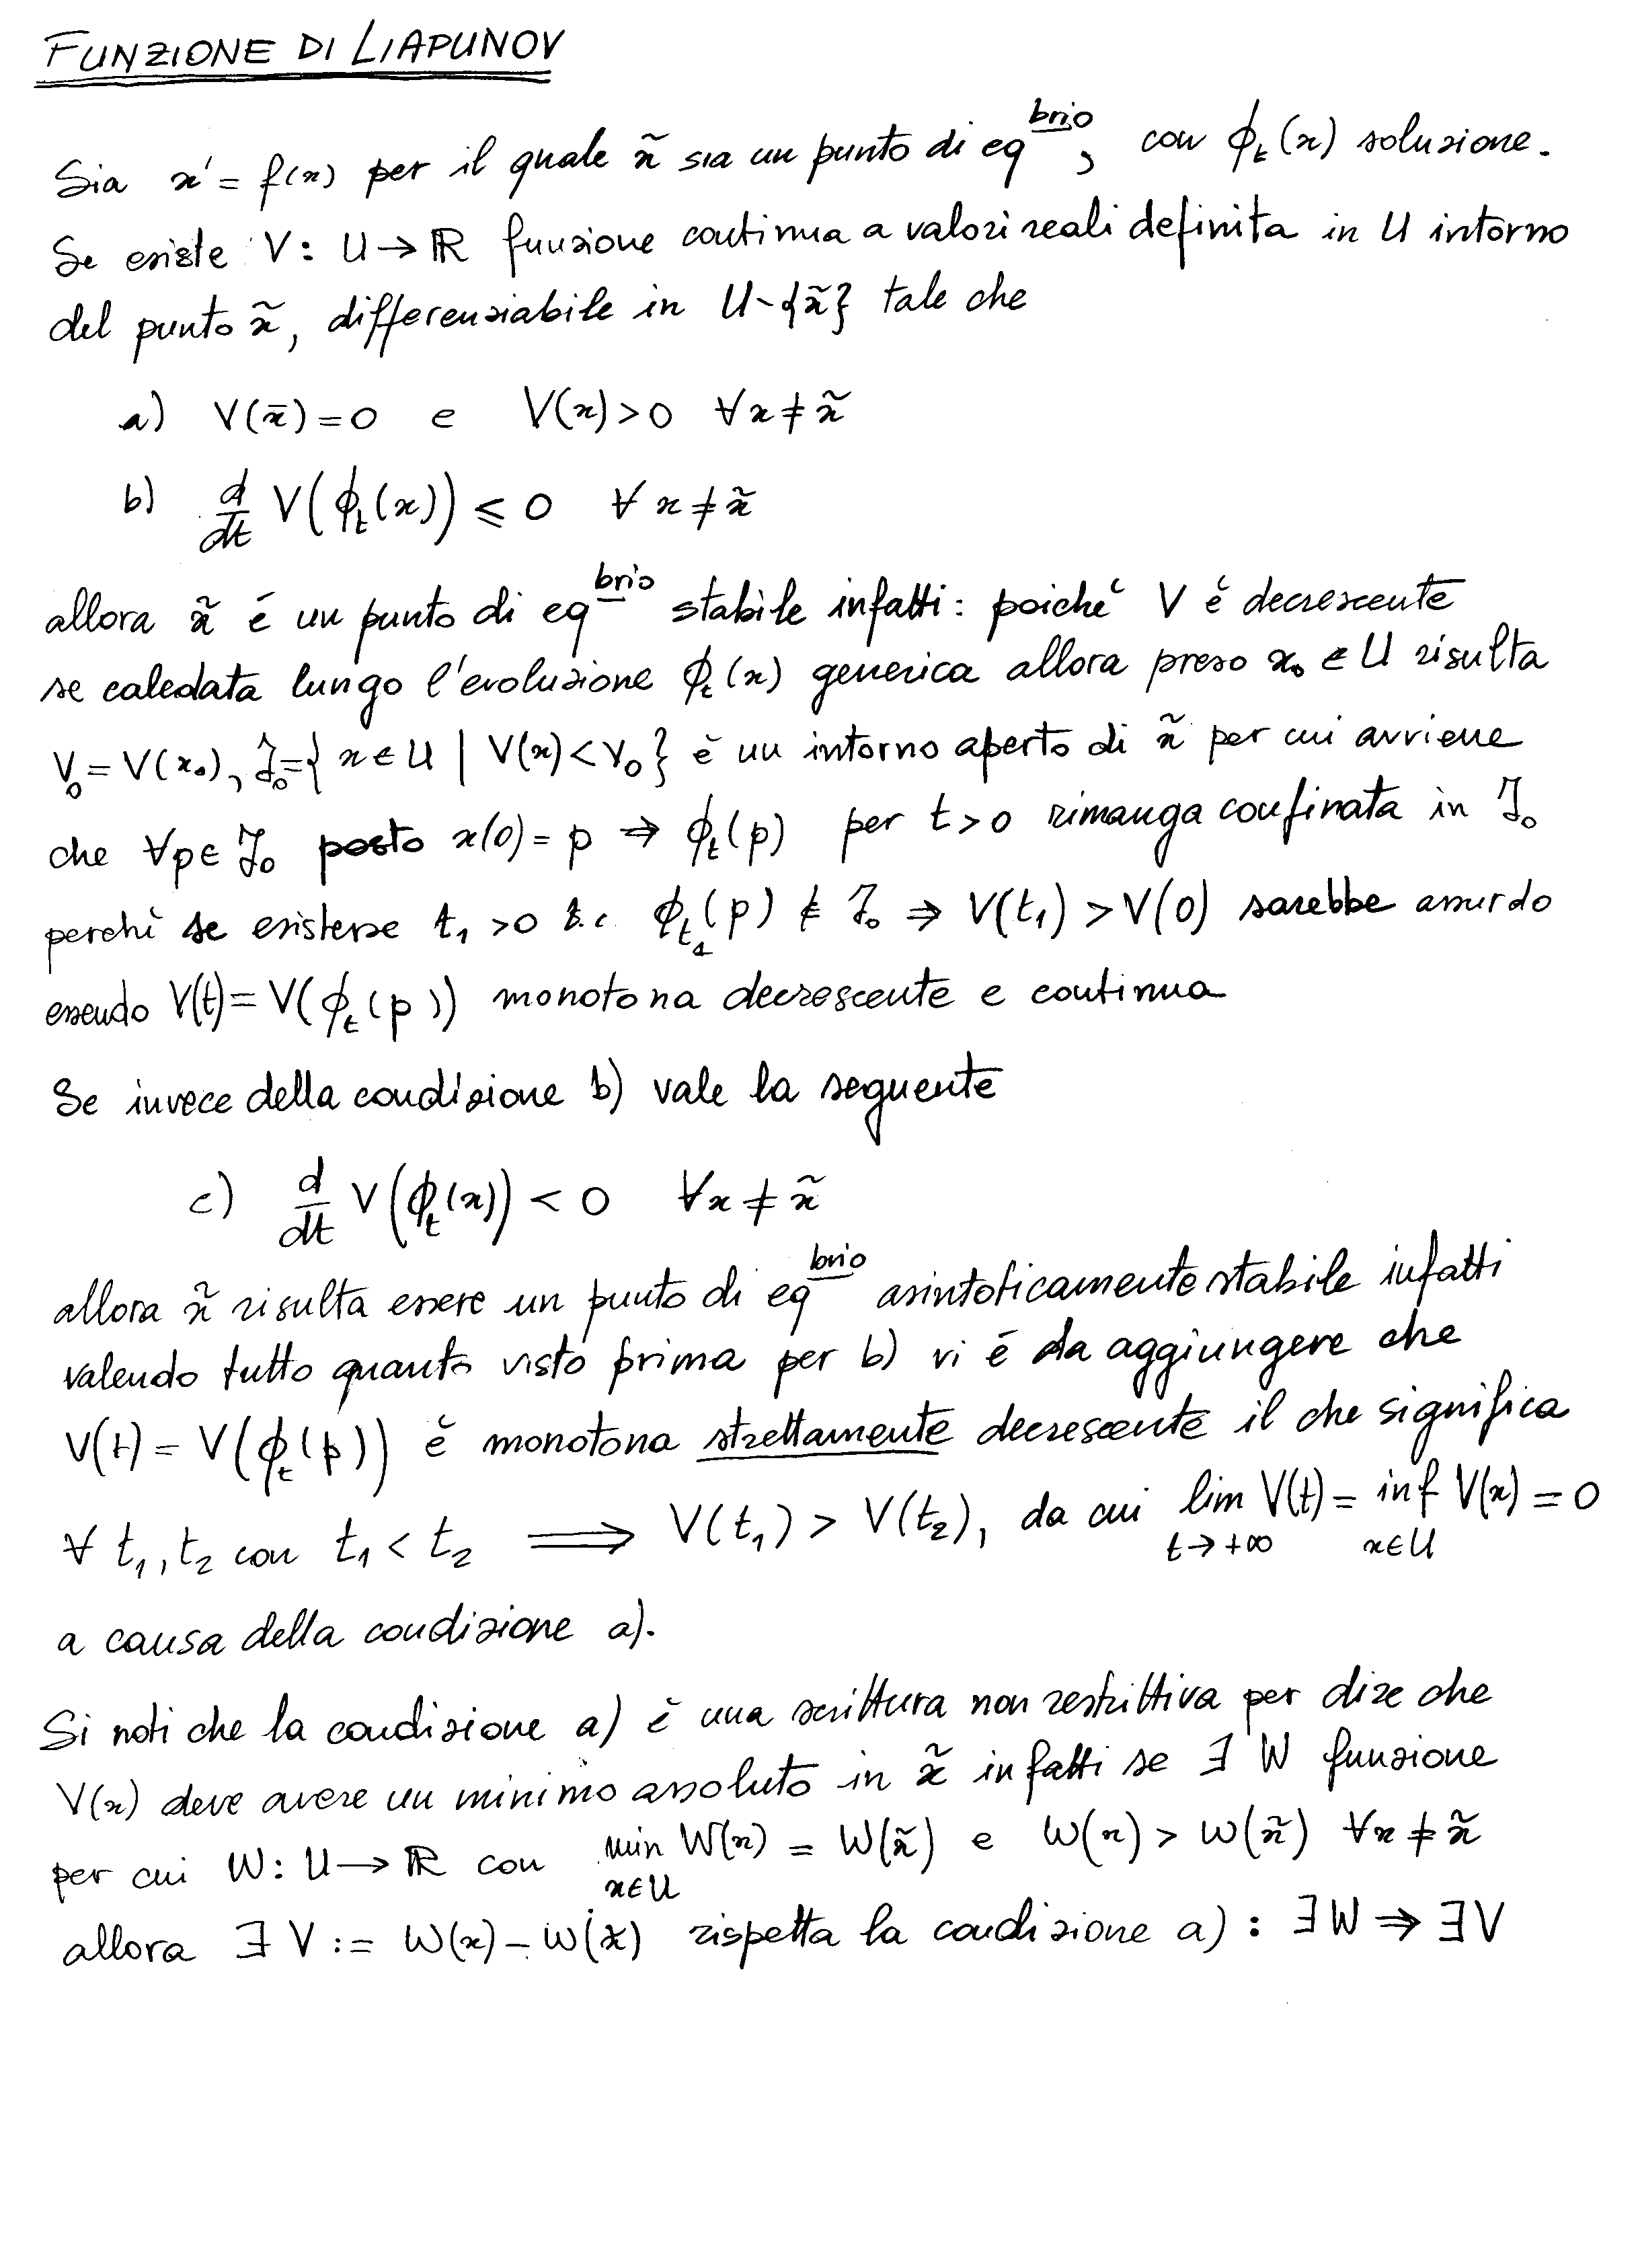 FUNZIONE DI LIAPUNOV
Sia x' = f(x) per il quale x̃ sia un punto di eq^brio, con ϕ_t(x) soluzione.
Se esiste V: U → ℝ funzione continua a valori reali definita in U intorno
del punto x̃, differenziabile in U-{x̃} tale che
a) V(x̄)=0 e V(x)>0 ∀x≠x̃
b) d/dt V(ϕ_t(x)) ⩽ 0 ∀x≠x̃
allora x̃ é un punto di eq^brio stabile infatti: poiché V è decrescente
se calcolata lungo l'evoluzione ϕ_t(x) generica allora preso x₀ ∈ U risulta
V₀ = V(x₀), J₀={x∈U | V(x)<V₀} è un intorno aperto di x̃ per cui avviene
che ∀p∈ J₀ posto x(0)= p ⇒ ϕ_t(p) per t>0 rimanga confinata in J₀
perchì se esistesse t₁>0 t.c. ϕ_t₁(p) ∉ J₀ ⇒ V(t₁) > V(0) sarebbe assurdo
essendo V(t)= V(ϕ_t(p)) monotona decrescente e continua
Se invece della condizione b) vale la seguente
c) d/dt V(ϕ_t(x)) < 0 ∀x≠x̃
allora x̃ risulta essere un punto di eq^brio asintoticamente stabile infatti
valendo tutto quanto visto prima per b) vi é da aggiungere che
V(t) = V(ϕ_t(p)) è monotona strettamente decrescente il che significa
∀ t₁,t₂ con t₁ < t₂ ⟹ V(t₁) > V(t₂), da cui lim_{t→+∞} V(t) = inf_{x∈U} V(x) = 0
a causa della condizione a).
Si noti che la condizione a) è una scrittura non restrittiva per dire che
V(x) deve avere un minimo assoluto in x̃ infatti se ∃ W funzione
per cui W: U → ℝ con min_{x∈U} W(x) = W(x̃) e W(x) > W(x̃) ∀x≠x̃
allora ∃ V := W(x) - W(x̃) rispetta la condizione a) : ∃W ⇒ ∃V